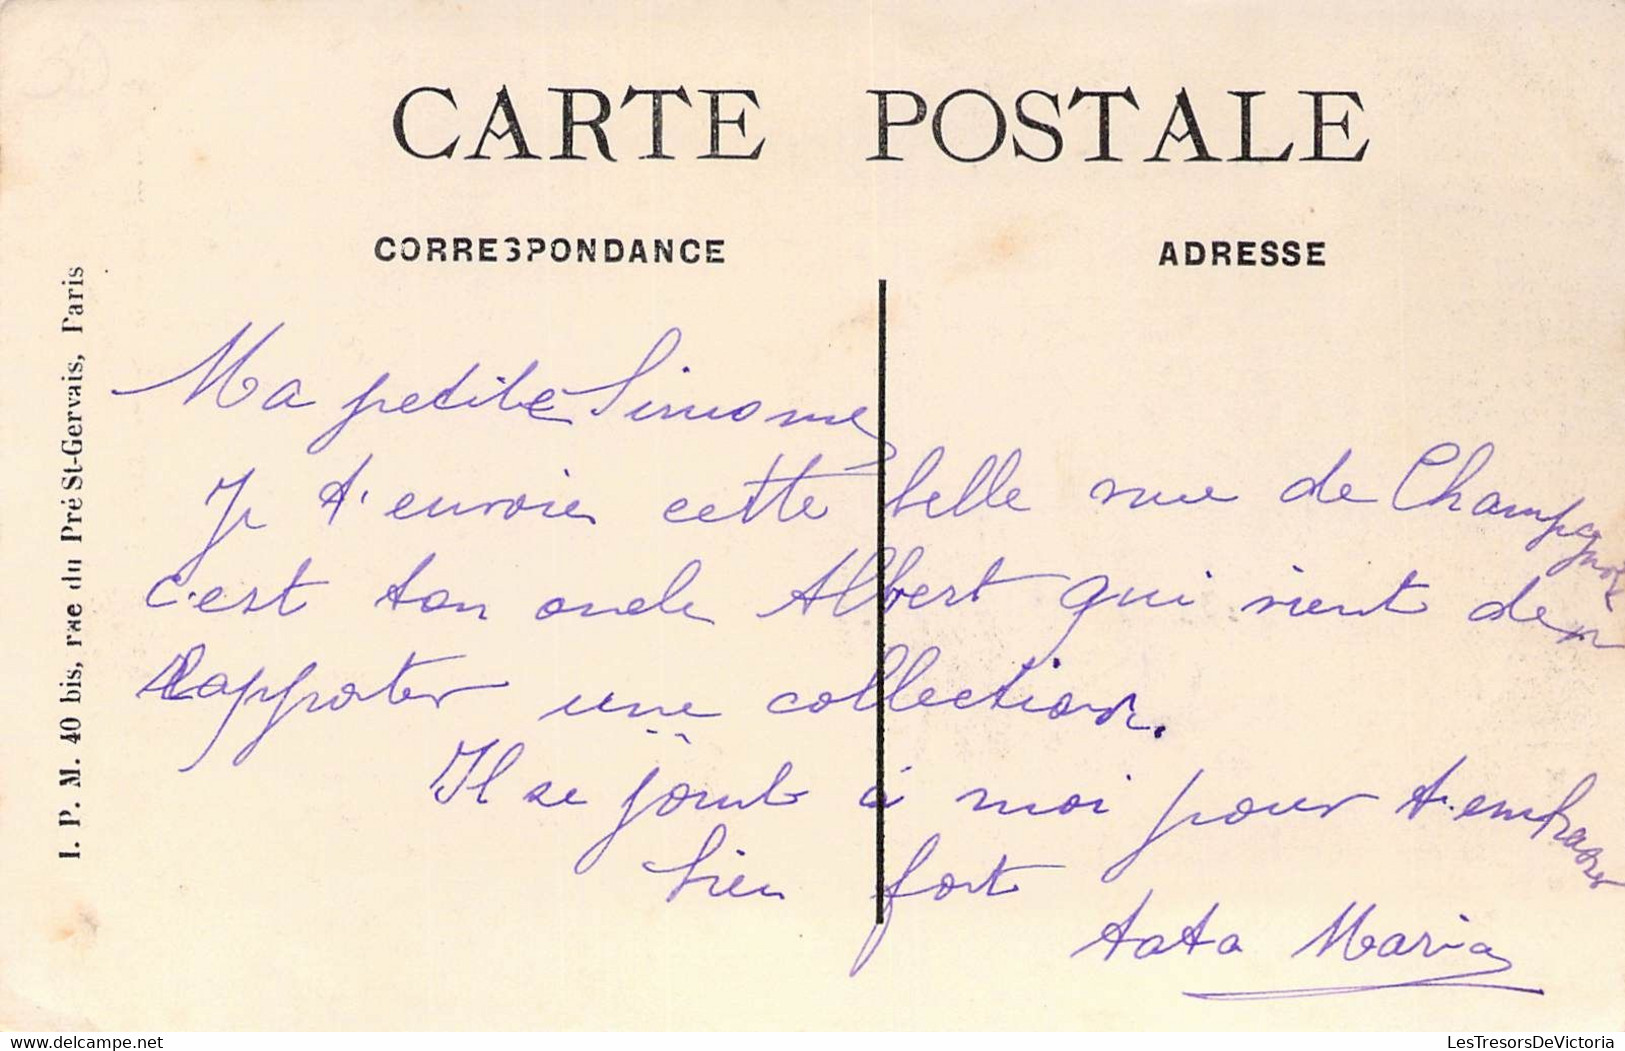 CARTE POSTALE
CORRESPONDANCE
ADRESSE
I. P. M. 40 bis, rue du Pré St-Gervais, Paris
Ma petite Simone
Je t'envoie cette belle vue de
c'est ton oncle Albert qui vient de m
rapporter une collection.
Il se joint à moi pour t'embrasser
bien fort
tata Maria
www.delcampe.net
LesTresorsDeVictoria